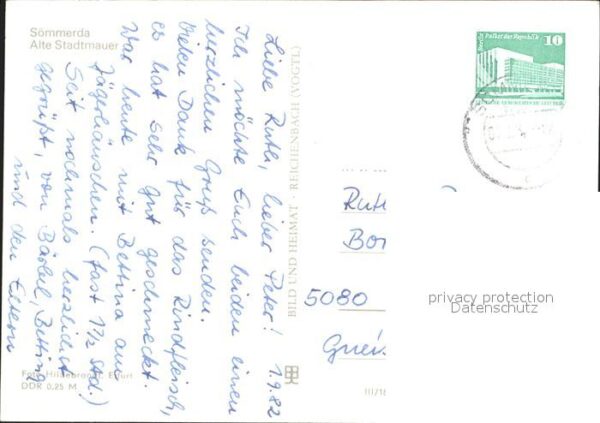 Sömmerda
Alte Stadtmauer
Liebe Ruth, lieber Peter! 1.9.82
Ich möchte Euch beiden einen
herzlichen Gruß senden.
Vielen Dank für das Rindfleisch,
es hat sehr gut geschmeckt.
War heute mit Bettina am
Jägerhäuschen. (fast 1½ Std.)
Seit nochmals herzlichst
gegrüßt, von Bärbel, Bettina
und den Eltern
Foto Hildebrandt, Erfurt
DDR 0,25 M
BILD UND HEIMAT REICHENBACH (VOGTL)
Berlin Palast der Republik
10
Ruth
Bor
5080
privacy protection
Datenschutz